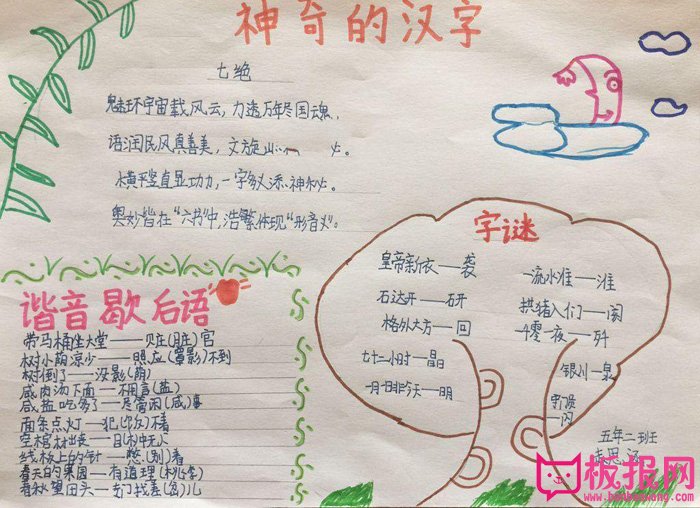 神奇的汉字
七绝
宇宙载风云,力透万年尽国魂。
语润民风真善美,文旋
横平竖直显功力,一字多义添神秘。
奥妙皆在“六书”中,浩繁体现“形音义”。
字谜
皇帝新衣——袭
一流水准——淮
石达开——研
拱猪入门——阂
格外大方——回
零一夜——歼
七十二小时——晶
银川——泉
一月一日非今天——明
一闪
谐音歇后语
带马桶坐大堂——赃(脏)官
树小荫凉少——(罩影)不到
树倒了——没影(荫)
咸肉汤下面——不用言(盐)
咸盐吃多了——尽管闲(咸)事
面条点灯——犯(饭)不着
空棺材出丧——目(木)中无人
线板上的针——憋(别)着
春天的果园——有道理(桃李)
春秋望田头——专门找差(岔)儿
五年二班
思
板报网
www.banbaowang.com